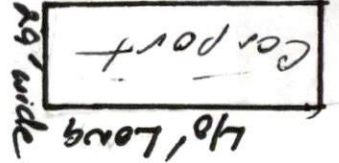 40' Long
Carport
29' wide